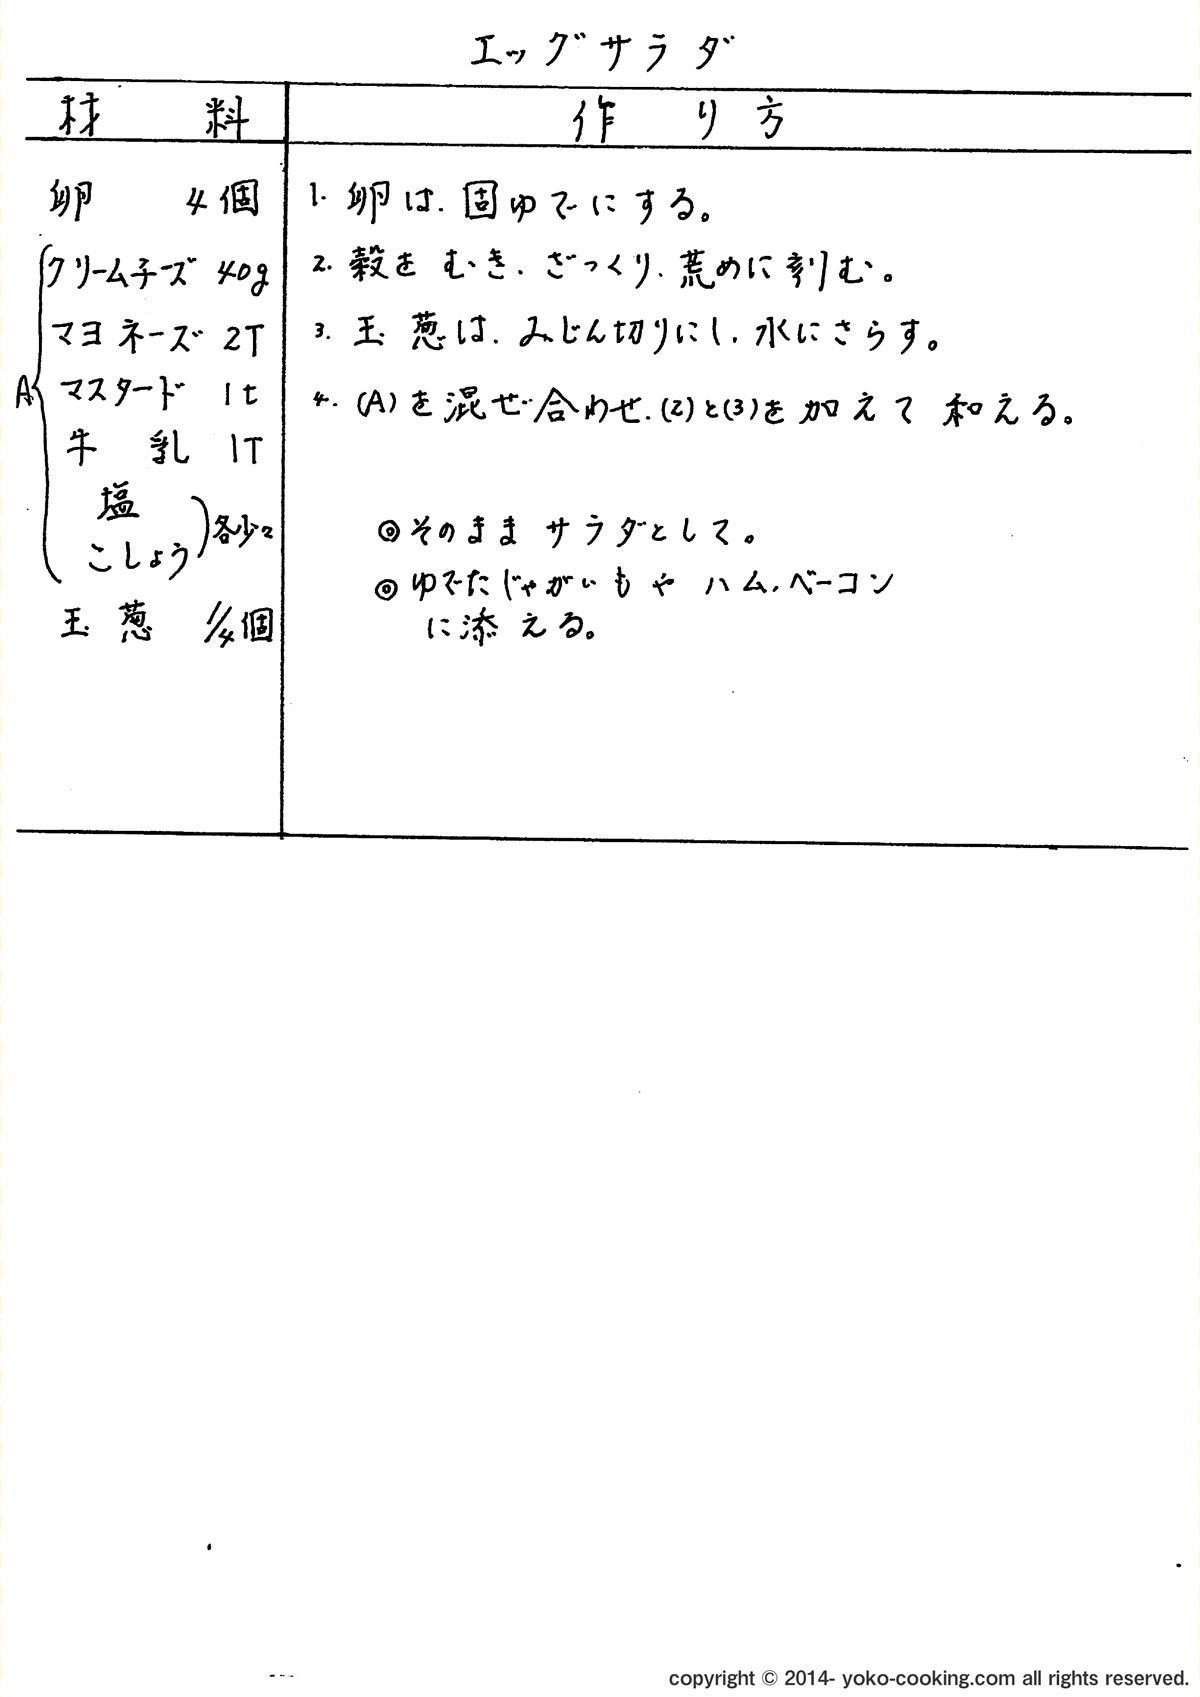 エッグサラダ
材料
作り方
卵 4個
A
クリームチーズ 40g
マヨネーズ 2T
マスタード 1t
牛乳 1T
塩
こしょう
各少々
玉葱 1/4個
1. 卵は、固ゆでにする。
2. 殻をむき、ざっくり、荒めに刻む。
3. 玉葱は、みじん切りにし、水にさらす。
4. (A)を混ぜ合わせ、(2)と(3)を加えて和える。
◎そのままサラダとして。
◎ゆでたじゃがいもやハム、ベーコン
に添える。
copyright © 2014- yoko-cooking.com all rights reserved.